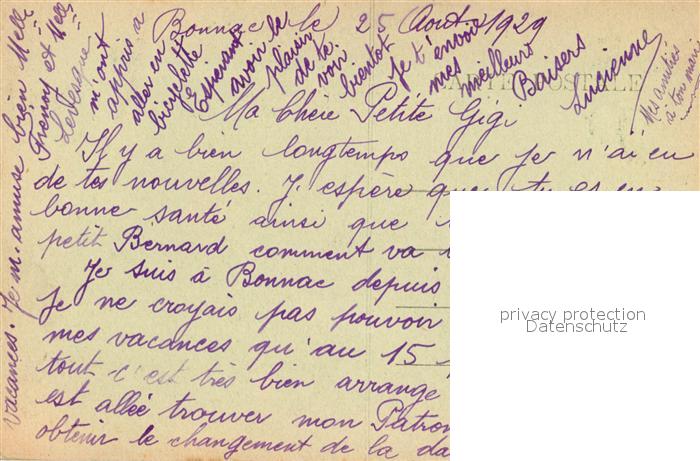 Bonnac le 25 Août 1929
CARTE POSTALE
Ma Chère Petite Gigi
Il y a bien longtemps que je n'ai eu
de tes nouvelles. J'espère que tu es en
bonne santé ainsi que
petit Bernard comment va
Je suis à Bonnac depuis
Je ne croyais pas pouvoir
mes vacances qu'au 15
tout c'est très bien arrangé
est allée trouver mon Patron
obtenir le changement de la da
vacances. Je m'amuse bien Melle
et Melle
Levesque
m'ont
appris a
aller en
bicyclette
Espérant
avoir le
plaisir
de te
voir
bientôt
Je t'envoie
mes
meilleurs
Baisers
Lucienne
Mes amitiés
à ton mari
privacy protection
Datenschutz